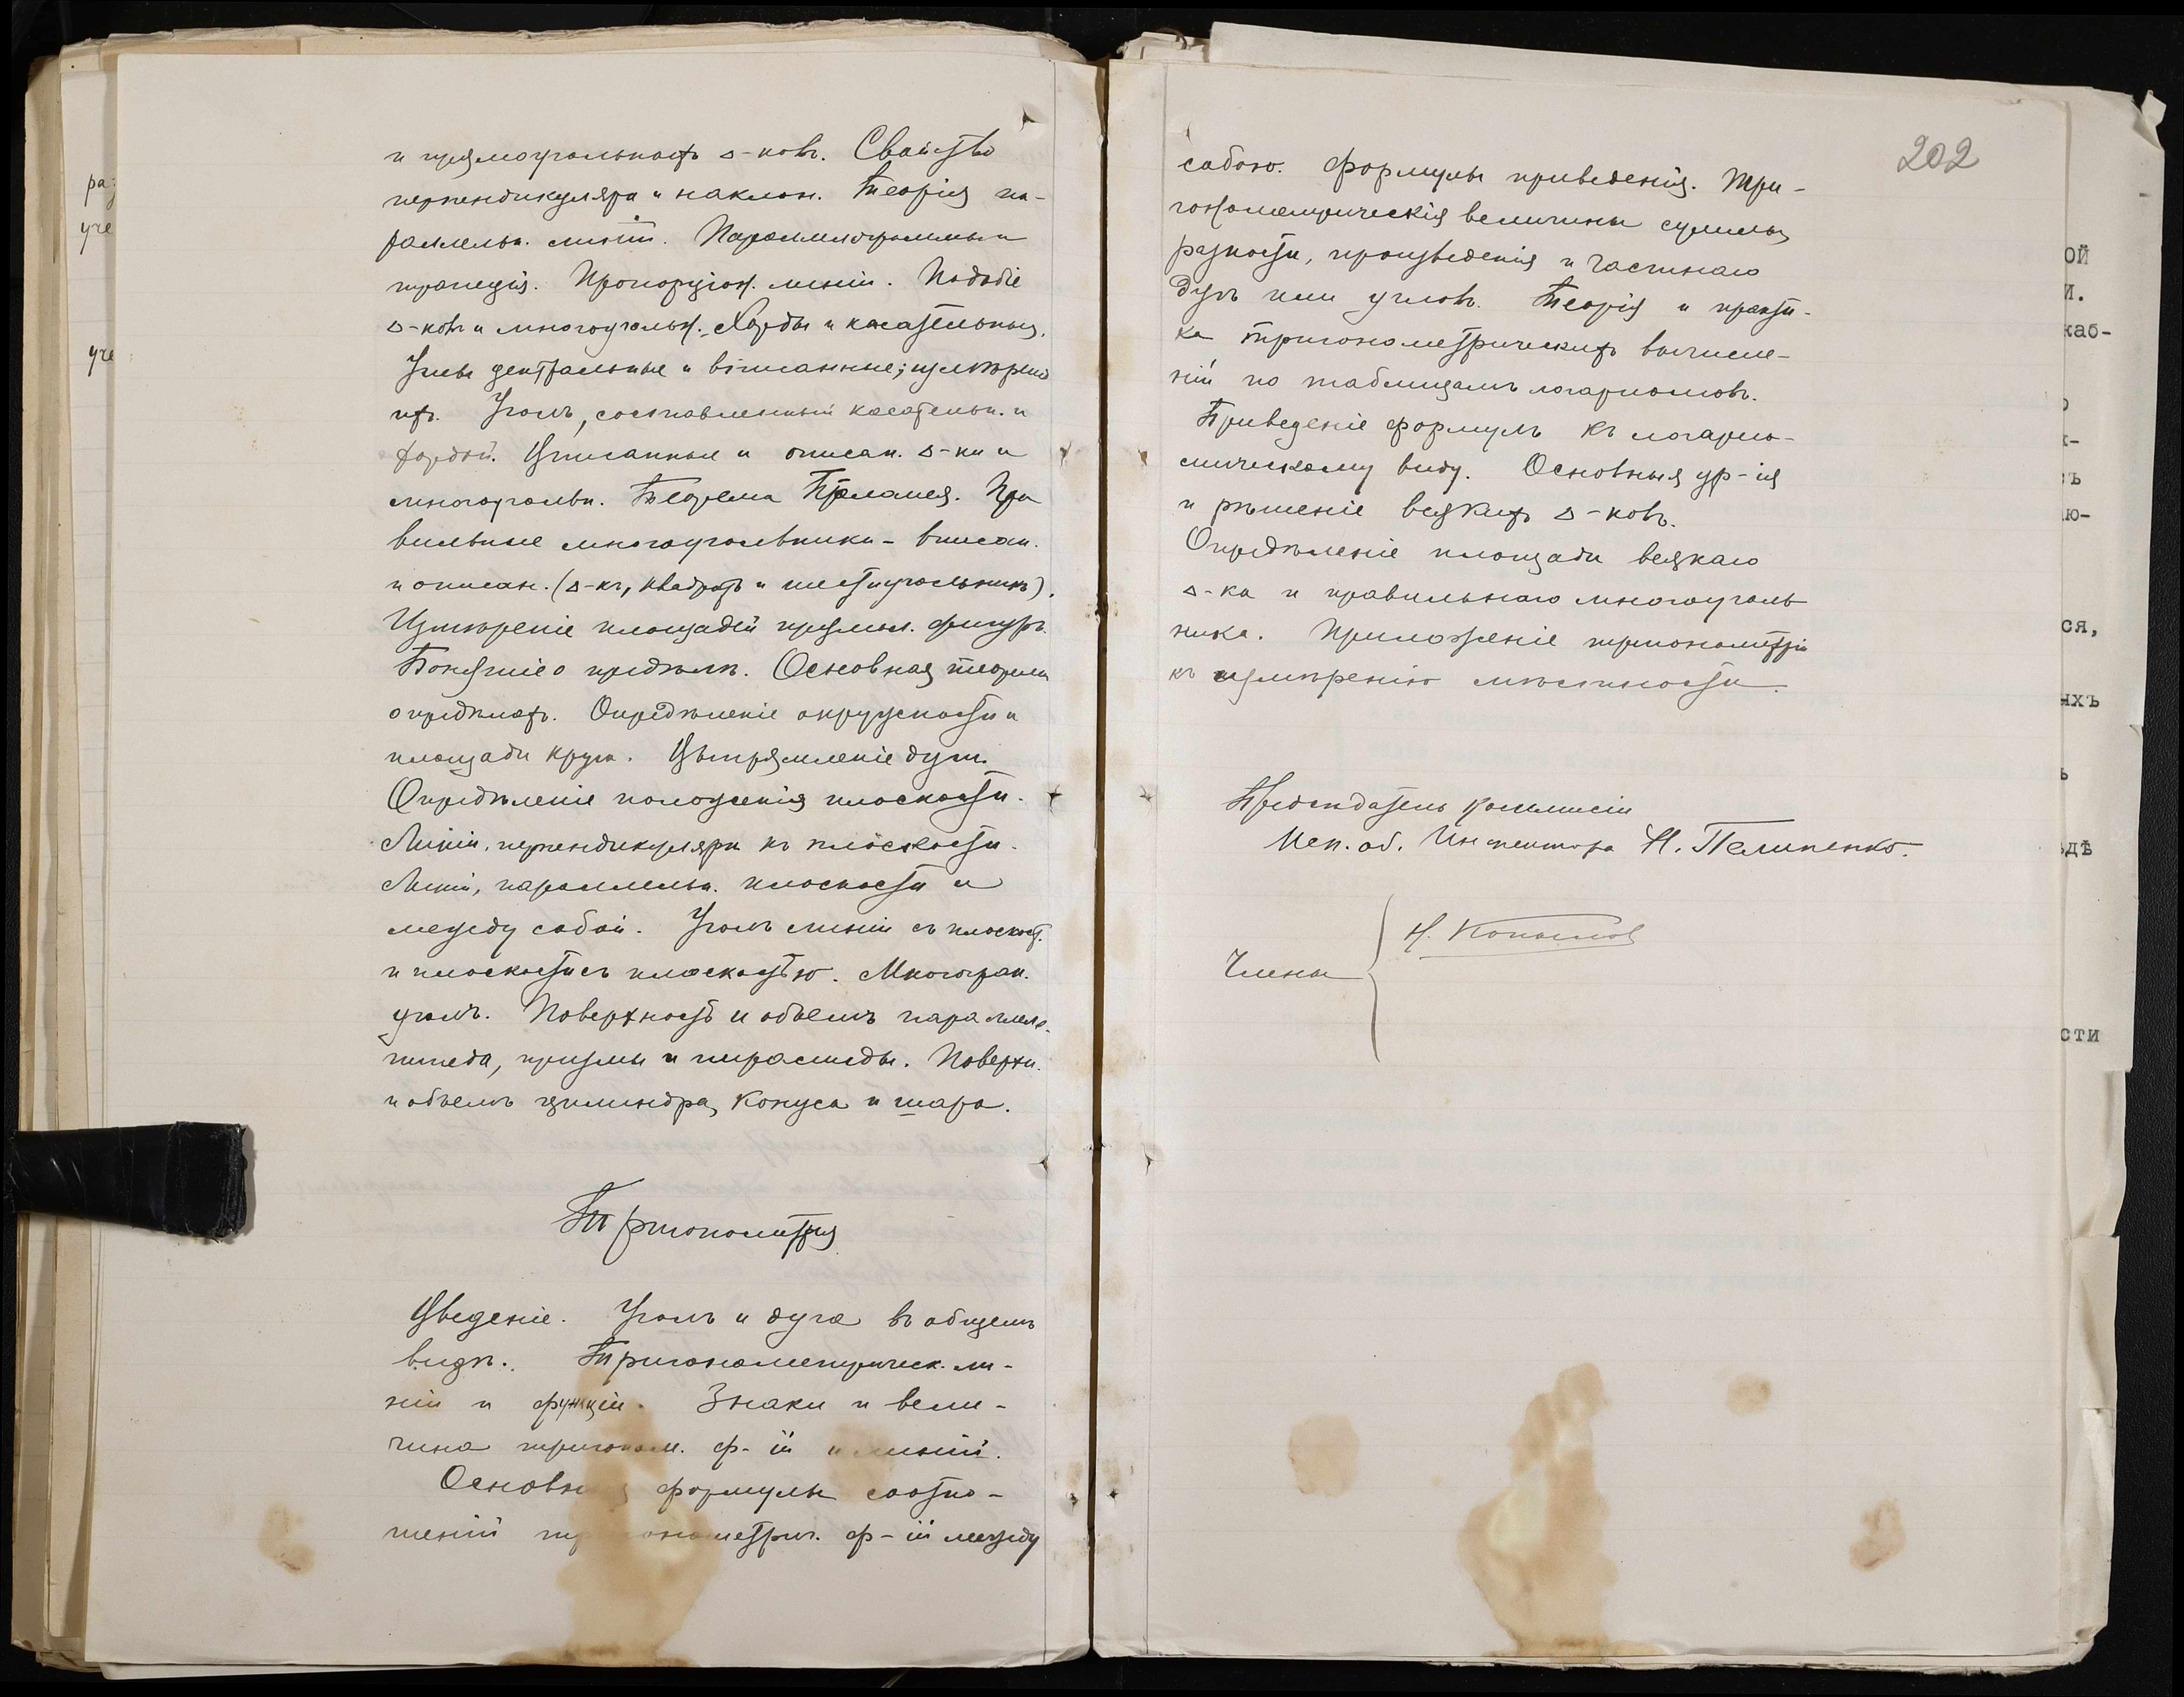 и прямоугольныхъ Δ-ковъ. Свойство
перпендикуляра и наклон. Теорія па-
раллельн. линій. Параллелограммъ и
трапеція. Пропорціон. линіи. Подобіе
Δ-ковъ и многоугольн. Хорды и касательныя.
Углы центральные и вписанные; измѣреніе
ихъ. Уголъ, составленный касательн. и
хордой. Вписанные и описан. Δ-ки и
многоугольн. Теорема Птоломея. Пра
вильные многоугольники - вписан.
и описан. (Δ-къ, квадратъ и шестиугольникъ).
Измѣреніе площадей прямол. фигуръ.
Понятіе о предѣлѣ. Основная теорема
о предѣлахъ. Опредѣленіе окружности и
площади круга. Выпрямленіе дуги.
Опредѣленіе положенія плоскости.
Линіи, перпендикулярн къ плоскости.
Линіи, параллельн. плоскости и
между собой. Уголъ линіи съ плоскост.
и плоскости съ плоскостью. Многогран.
уголъ. Поверхность и объемъ параллеле-
пипеда, призмы и пирамиды. Поверхн.
и объемъ цилиндра, конуса и шара.
Тригонометрія
Введеніе. Уголъ и дуга въ общемъ
видѣ. Тригонометрическ. ли-
ніи и функціи. Знаки и вели-
чина тригоном. ф-ій и линій.
Основныя формулы соотно-
шеній тригонометрич. ф-ій между
202
собою. Формулы приведенія. Три-
гонометрическія величины суммы,
разности, произведенія и частнаго
дугъ или угловъ. Теорія и практи-
ка тригонометрическихъ вычисле-
ній по таблицамъ логариѳмовъ.
Приведеніе формулъ къ логариѳ-
мическому виду. Основныя ур-ія
и рѣшеніе всякихъ Δ-ковъ.
Опредѣленіе площади всякаго
Δ-ка и правильнаго многоуголь
ника. Приложеніе тригонометріи
къ измѣренію мѣстности.
Предсѣдатель Коммисіи
Исп. об. Инспектора Н. Пелипенко.
Члены
Н.
ра
уче
уче
ой
и.
каб-
ся,
ыхъ
ьдѣ
сти